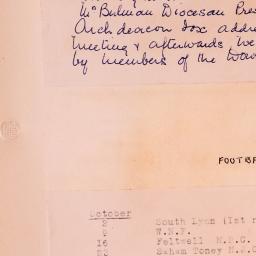 Mrs Bulman Diocesan Pres
Archdeacon Fox addre
meeting & afterwards we
by members of the
FOOTBA
October
2 South Lynn (1st r
9 W.N.F.
16 Feltwell M.S.C.
23 Saham Toney